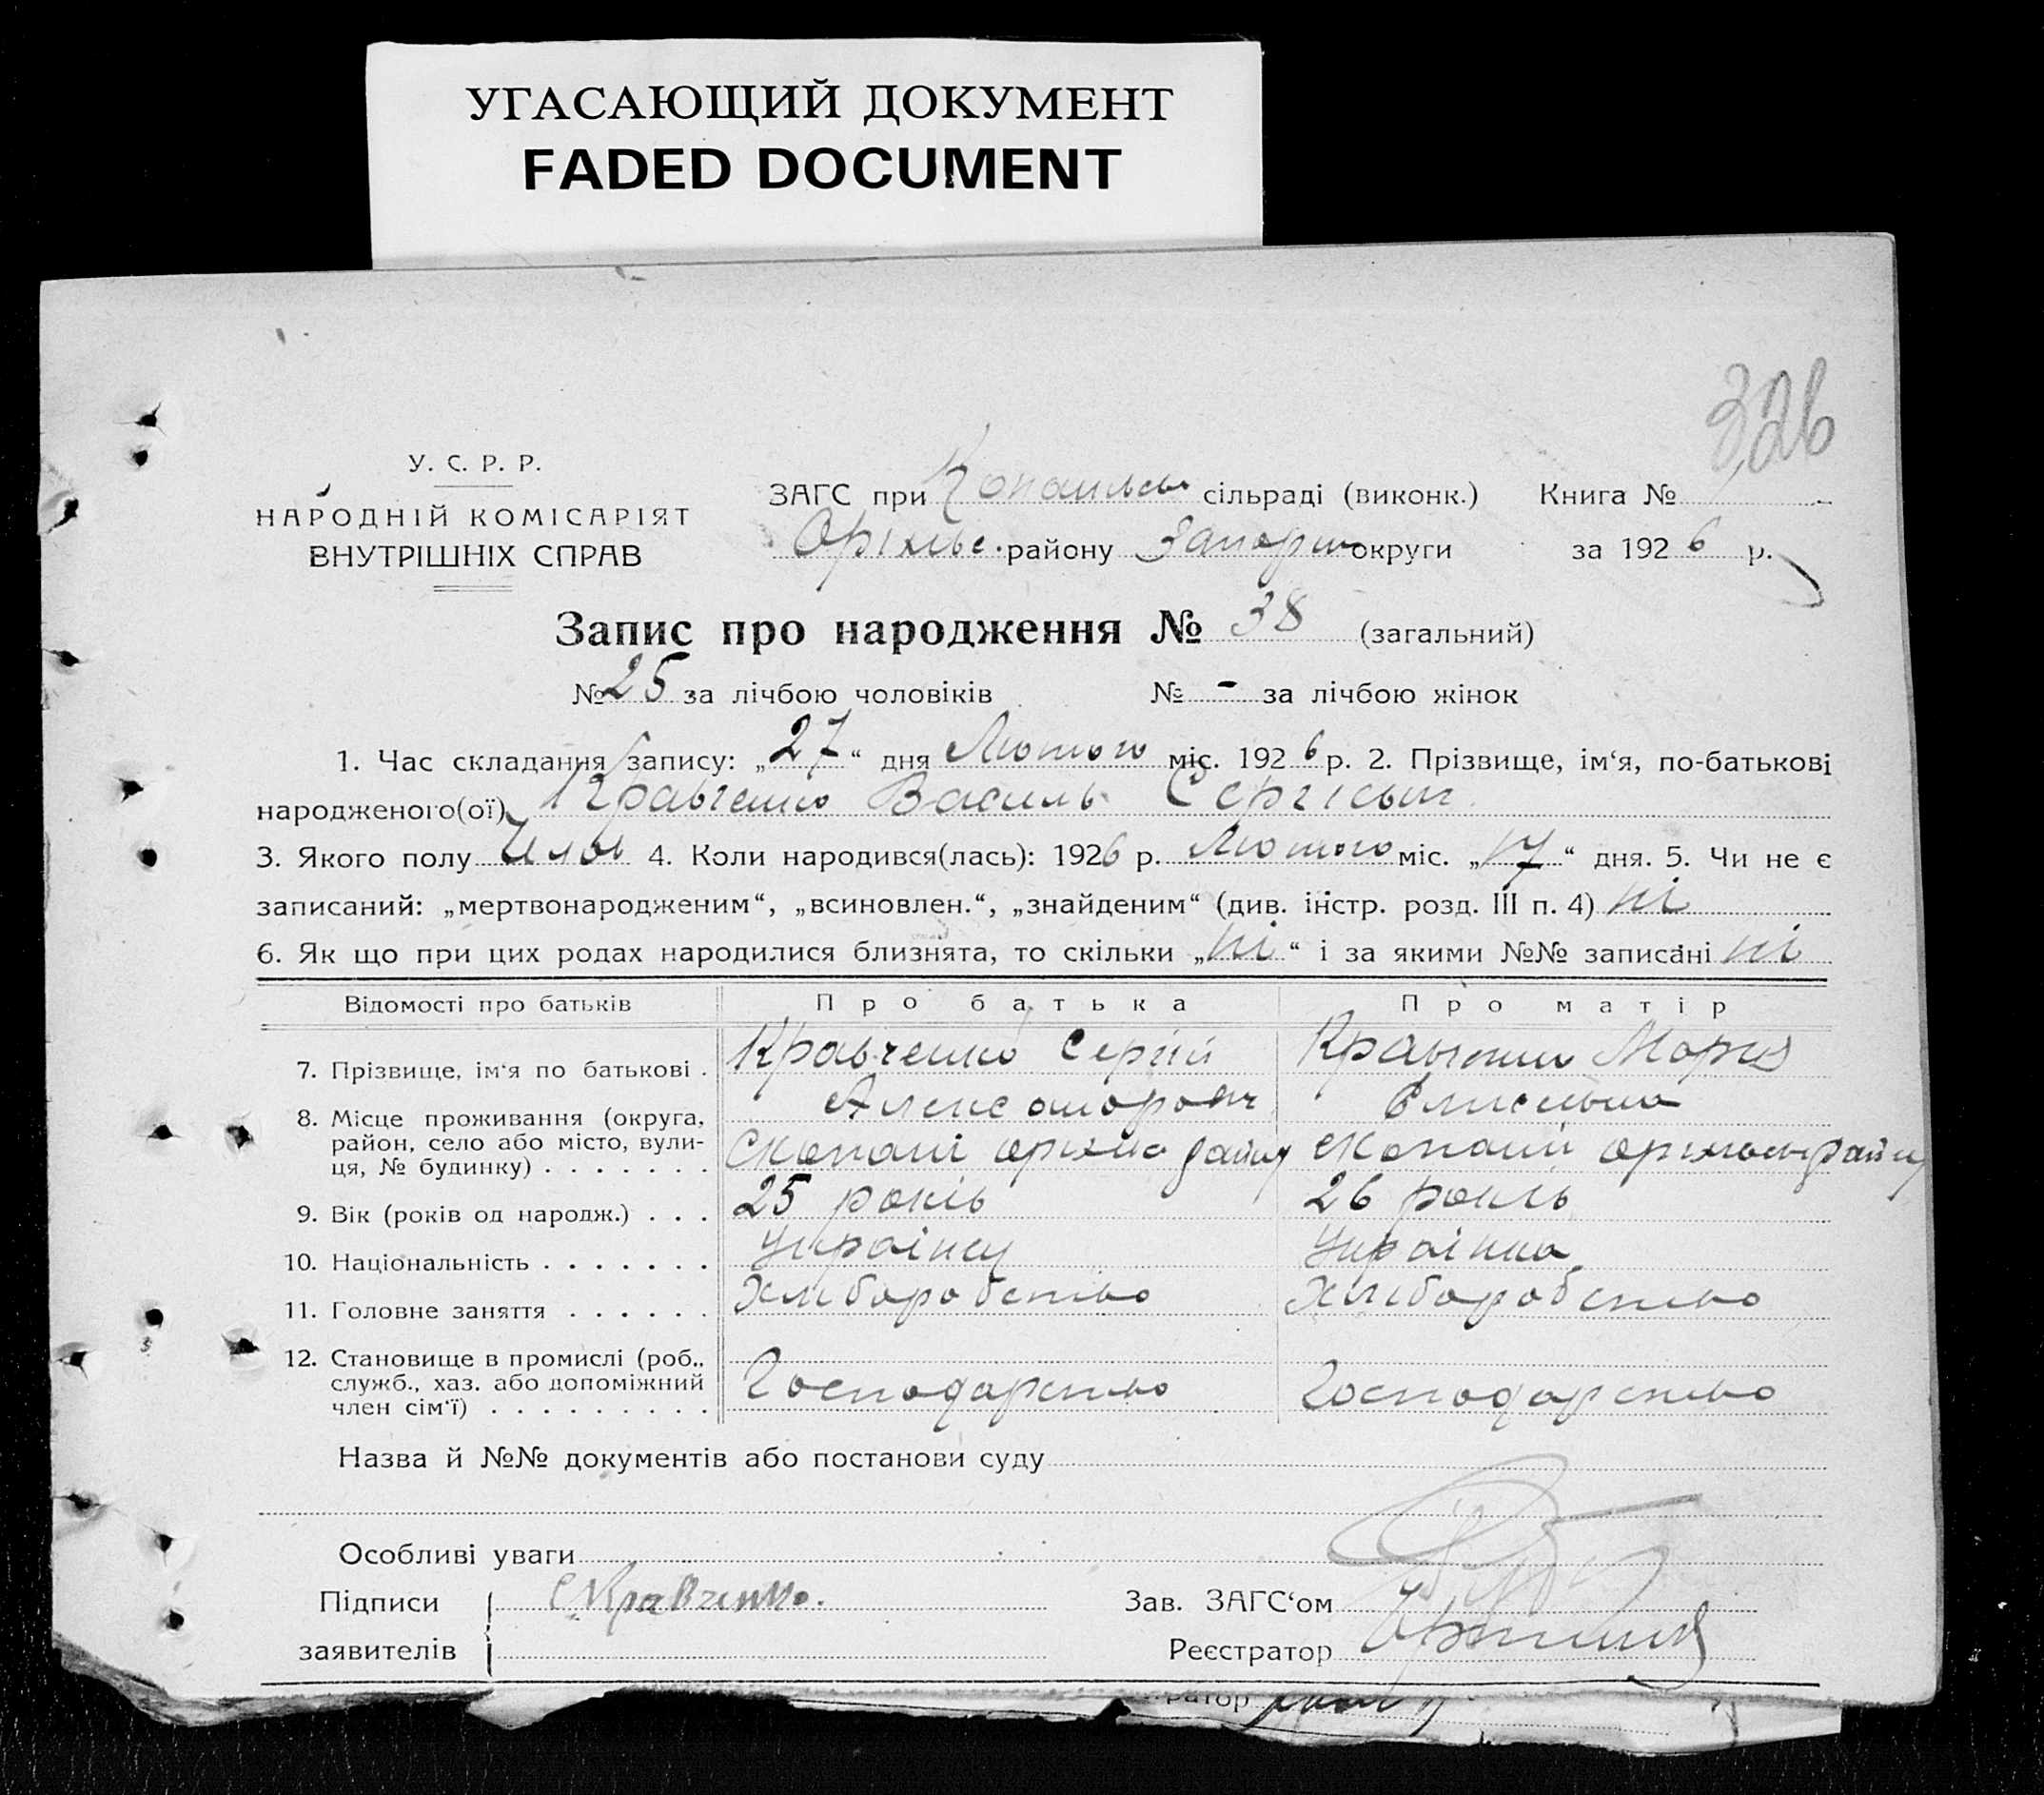 УГАСАЮЩИЙ ДОКУМЕНТ
FADED DOCUMENT
326
У. С. Р. Р.
НАРОДНІЙ КОМІСАРІЯТ
ВНУТРІШНІХ СПРАВ
ЗАГС при Копансь сільраді (виконк.) Книга №
Оріхівс. району Запоріж округи за 1926 р.
Запис про народження № 38 (загальний)
№ 25 за лічбою чоловіків № - за лічбою жінок
1. Час складання запису: „27“ дня Лютого міс. 1926 р. 2. Прізвище, ім‘я, по-батькові
народженого(ої) Кравченко Василь Сергієвич
3. Якого полу Чолов 4. Коли народився(лась): 1926 р. Лютого міс. „17“ дня. 5. Чи не є
записаний: „мертвонародженим“, „всиновлен.“, „знайденим“ (див. інстр. розд. III п. 4) ні
6. Як що при цих родах народилися близнята, то скільки „ні“ і за якими №№ записані ні
Відомості про батьків Про батька Про матір
7. Прізвище, ім‘я по батькові . Кравченко Сергій Кравченко Мария
Александрович Елисеевна
8. Місце проживання (округа,
район, село або місто, вули-
ця, № будинку) . . . . . . . с Копані оріхів району с Копані оріхівсь району
9. Вік (років од народж.) . . . 25 років 26 років
10. Національність . . . . . . . Українец Українка
11. Головне заняття . . . . . . Хліборобство Хліборобство
12. Становище в промислі (роб.,
служб., хаз. або допоміжний
член сім‘ї) . . . . . . . . . Господарство Господарство
Назва й №№ документів або постанови суду
Особливі уваги
Підписи С Кравченко. Зав. ЗАГС‘ом
заявителів Реєстратор
ратор